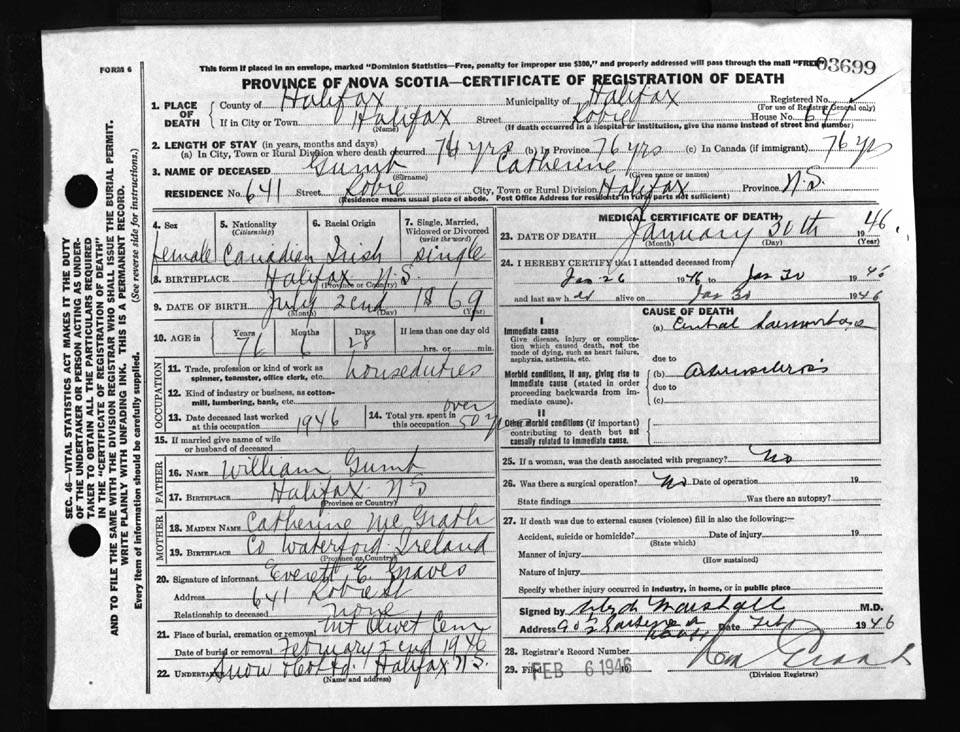 FORM 6
This form if placed in an envelope, marked "Dominion Statistics—Free, penalty for improper use $300," and properly addressed will pass through the mail "FREE"
03699
PROVINCE OF NOVA SCOTIA—CERTIFICATE OF REGISTRATION OF DEATH
1. PLACE OF DEATH
County of Halifax Municipality of Halifax Registered No.
(For use of Registrar General only)
If in City or Town Halifax Street Robie House No. 641
(Name) (If death occurred in a hospital or institution, give the name instead of street and number)
2. LENGTH OF STAY (in years, months and days)
(a) In City, Town or Rural Division where death occurred 76 yrs (b) In Province 76 yrs (c) In Canada (if immigrant) 76 yrs
3. NAME OF DECEASED Gumb Catherine
(Surname) (Given name or names)
RESIDENCE No. 641 Street Robie City, Town or Rural Division Halifax Province N.S.
(Residence means usual place of abode. Post Office Address for residents in rural parts not sufficient)
4. Sex female
5. Nationality (Citizenship) Canadian
6. Racial Origin Irish
7. Single, Married, Widowed or Divorced (write the word) single
8. BIRTHPLACE Halifax N.S.
(Province or Country)
9. DATE OF BIRTH July 2 2nd 1869
(Month) (Day) (Year)
10. AGE in Years Months Days If less than one day old
76 6 28 hrs. or min.
OCCUPATION
11. Trade, profession or kind of work as spinner, teamster, office clerk, etc. houseduties
12. Kind of industry or business, as cotton-mill, lumbering, bank, etc.
13. Date deceased last worked at this occupation 1946
14. Total yrs. spent in this occupation over 50 yrs
15. If married give name of wife or husband of deceased
FATHER
16. NAME William Gumb
17. BIRTHPLACE Halifax N.S
(Province or Country)
MOTHER
18. MAIDEN NAME Catherine Mc Grath
19. BIRTHPLACE Co Waterford Ireland
(Province or Country)
20. Signature of informant Everett E. Graves
Address 641 Robie St
Relationship to deceased None
21. Place of burial, cremation or removal Mt Olivet Cem
Date of burial or removal February 2nd 1946
22. Undertaker Snow & Co Ltd. Halifax N.S.
(Name and address)
MEDICAL CERTIFICATE OF DEATH
23. DATE OF DEATH January 30th 1946
(Month) (Day) (Year)
24. I HEREBY CERTIFY that I attended deceased from
Jan 26 1946 to Jan 30 1946
and last saw her alive on Jan 30 1946
CAUSE OF DEATH
I
Immediate cause
Give disease, injury or complication which caused death, not the mode of dying, such as heart failure, asphyxia, asthenia, etc.
(a) Cerebral haemorrhage
due to
Morbid conditions, if any, giving rise to immediate cause (stated in order proceeding backwards from immediate cause).
(b) Arteriosclerosis
due to
(c)
II
Other morbid conditions (if important) contributing to death but not causally related to immediate cause.
25. If a woman, was the death associated with pregnancy? No
26. Was there a surgical operation? No Date of operation 19
State findings Was there an autopsy?
27. If death was due to external causes (violence) fill in also the following:—
Accident, suicide or homicide? Date of injury 19
(State which)
Manner of injury
(How sustained)
Nature of injury
Specify whether injury occurred in industry, in home, or in public place
Signed by Clyde Marshall M.D.
Address Date Feb 1946
28. Registrar's Record Number
29. Filed FEB 6 1946 19
(Division Registrar)
SEC. 46—VITAL STATISTICS ACT MAKES IT THE DUTY
OF THE UNDERTAKER OR PERSON ACTING AS UNDERTAKER
TO OBTAIN ALL THE PARTICULARS REQUIRED
IN THE "CERTIFICATE OF REGISTRATION OF DEATH"
AND TO FILE THE SAME WITH THE DIVISION REGISTRAR WHO SHALL ISSUE THE BURIAL PERMIT.
WRITE PLAINLY WITH UNFADING INK. THIS IS A PERMANENT RECORD.
Every item of information should be carefully supplied. (See reverse side for instructions.)